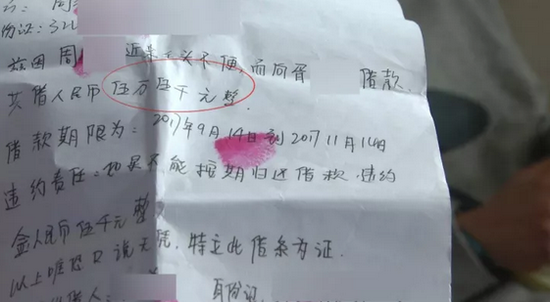 份证:32
兹因 周 近来手头不便,而向胥 借款.
共借人民币 伍万伍千元整.
借款期限为: 2017年9月14日到2017 11月14日
违约责任:如果不能按期归还借款.违约
金人民币伍千元整
以上唯恐口说无凭.特立此借条为证.
借人: 身份证